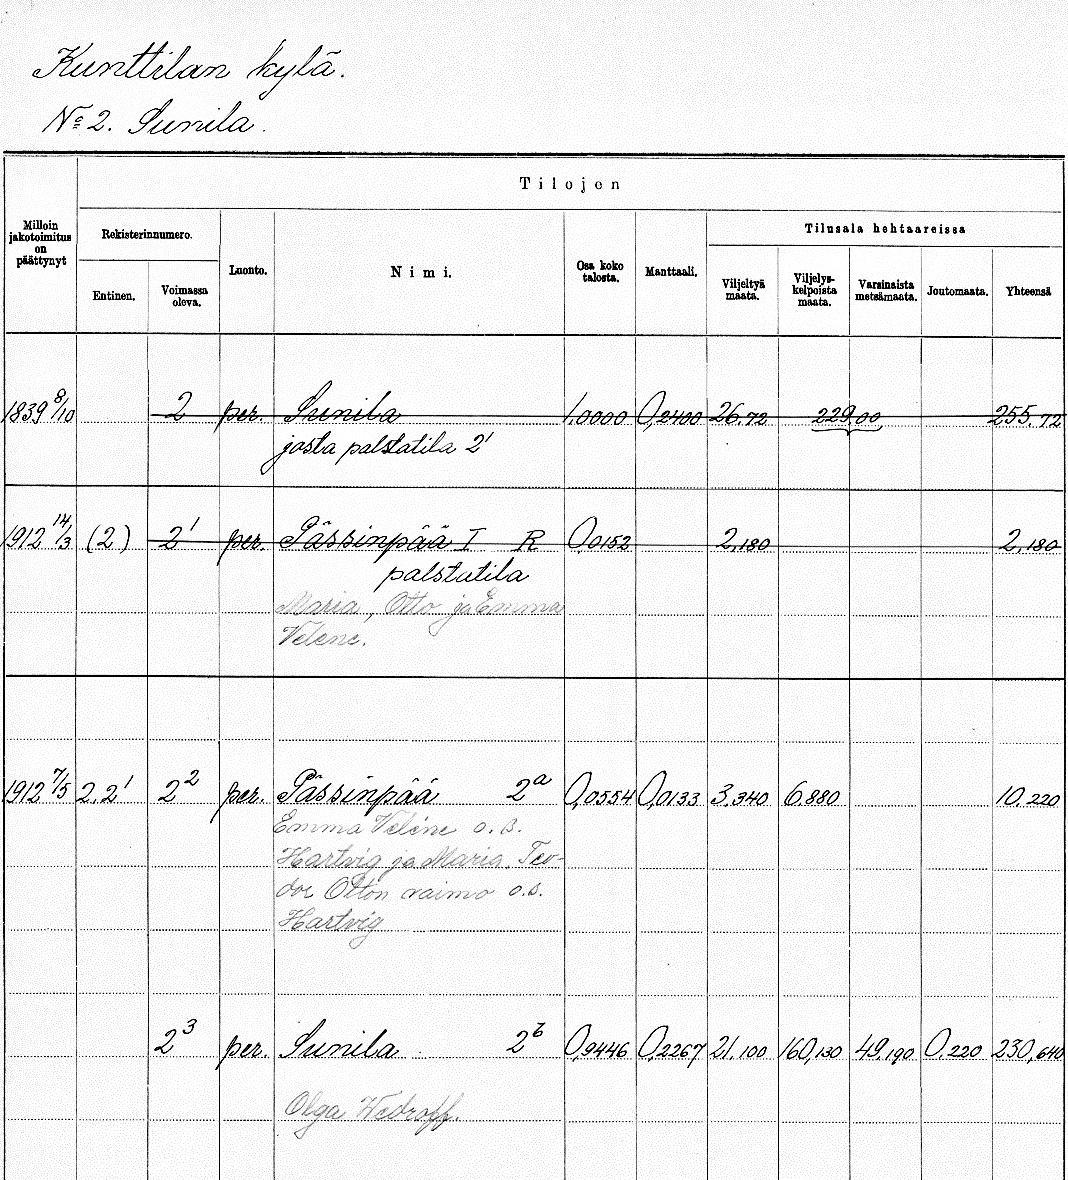 Kunttilan kylä.
No 2. Sunila.
Tilojen
Milloin jakotoimitus on päättynyt
Rekisterinnumero.
Entinen.
Voimassa oleva.
Luonto.
Nimi.
Osa koko talosta.
Manttaali.
Tilusala hehtaareissa
Viljeltyä maata.
Viljelys-kelpoista maata.
Varsinaista metsämaata.
Joutomaata.
Yhteensä
1839 8/10 2 per. Sunila 1,0000 0,2400 26.72 229.00 255.72
josta palstatila 2¹
1912 14/3 (2) 2¹ per. Pässinpää I R 0,0152 2,180 2,180
palstatila
Maria, Otto ja Emma
Velene.
1912 7/5 2.2¹ 2² per. Pässinpää 2a 0,0554 0,0133 3.340 6.880 10.220
Emma Veléne o.s.
Hartvig ja Maria Teo-
dor Otton vaimo o.s.
Hartvig
2³ per. Sunila 2b 0,9446 0,2267 21.100 160,130 49,190 0.220 230,640
Olga Wedroff.